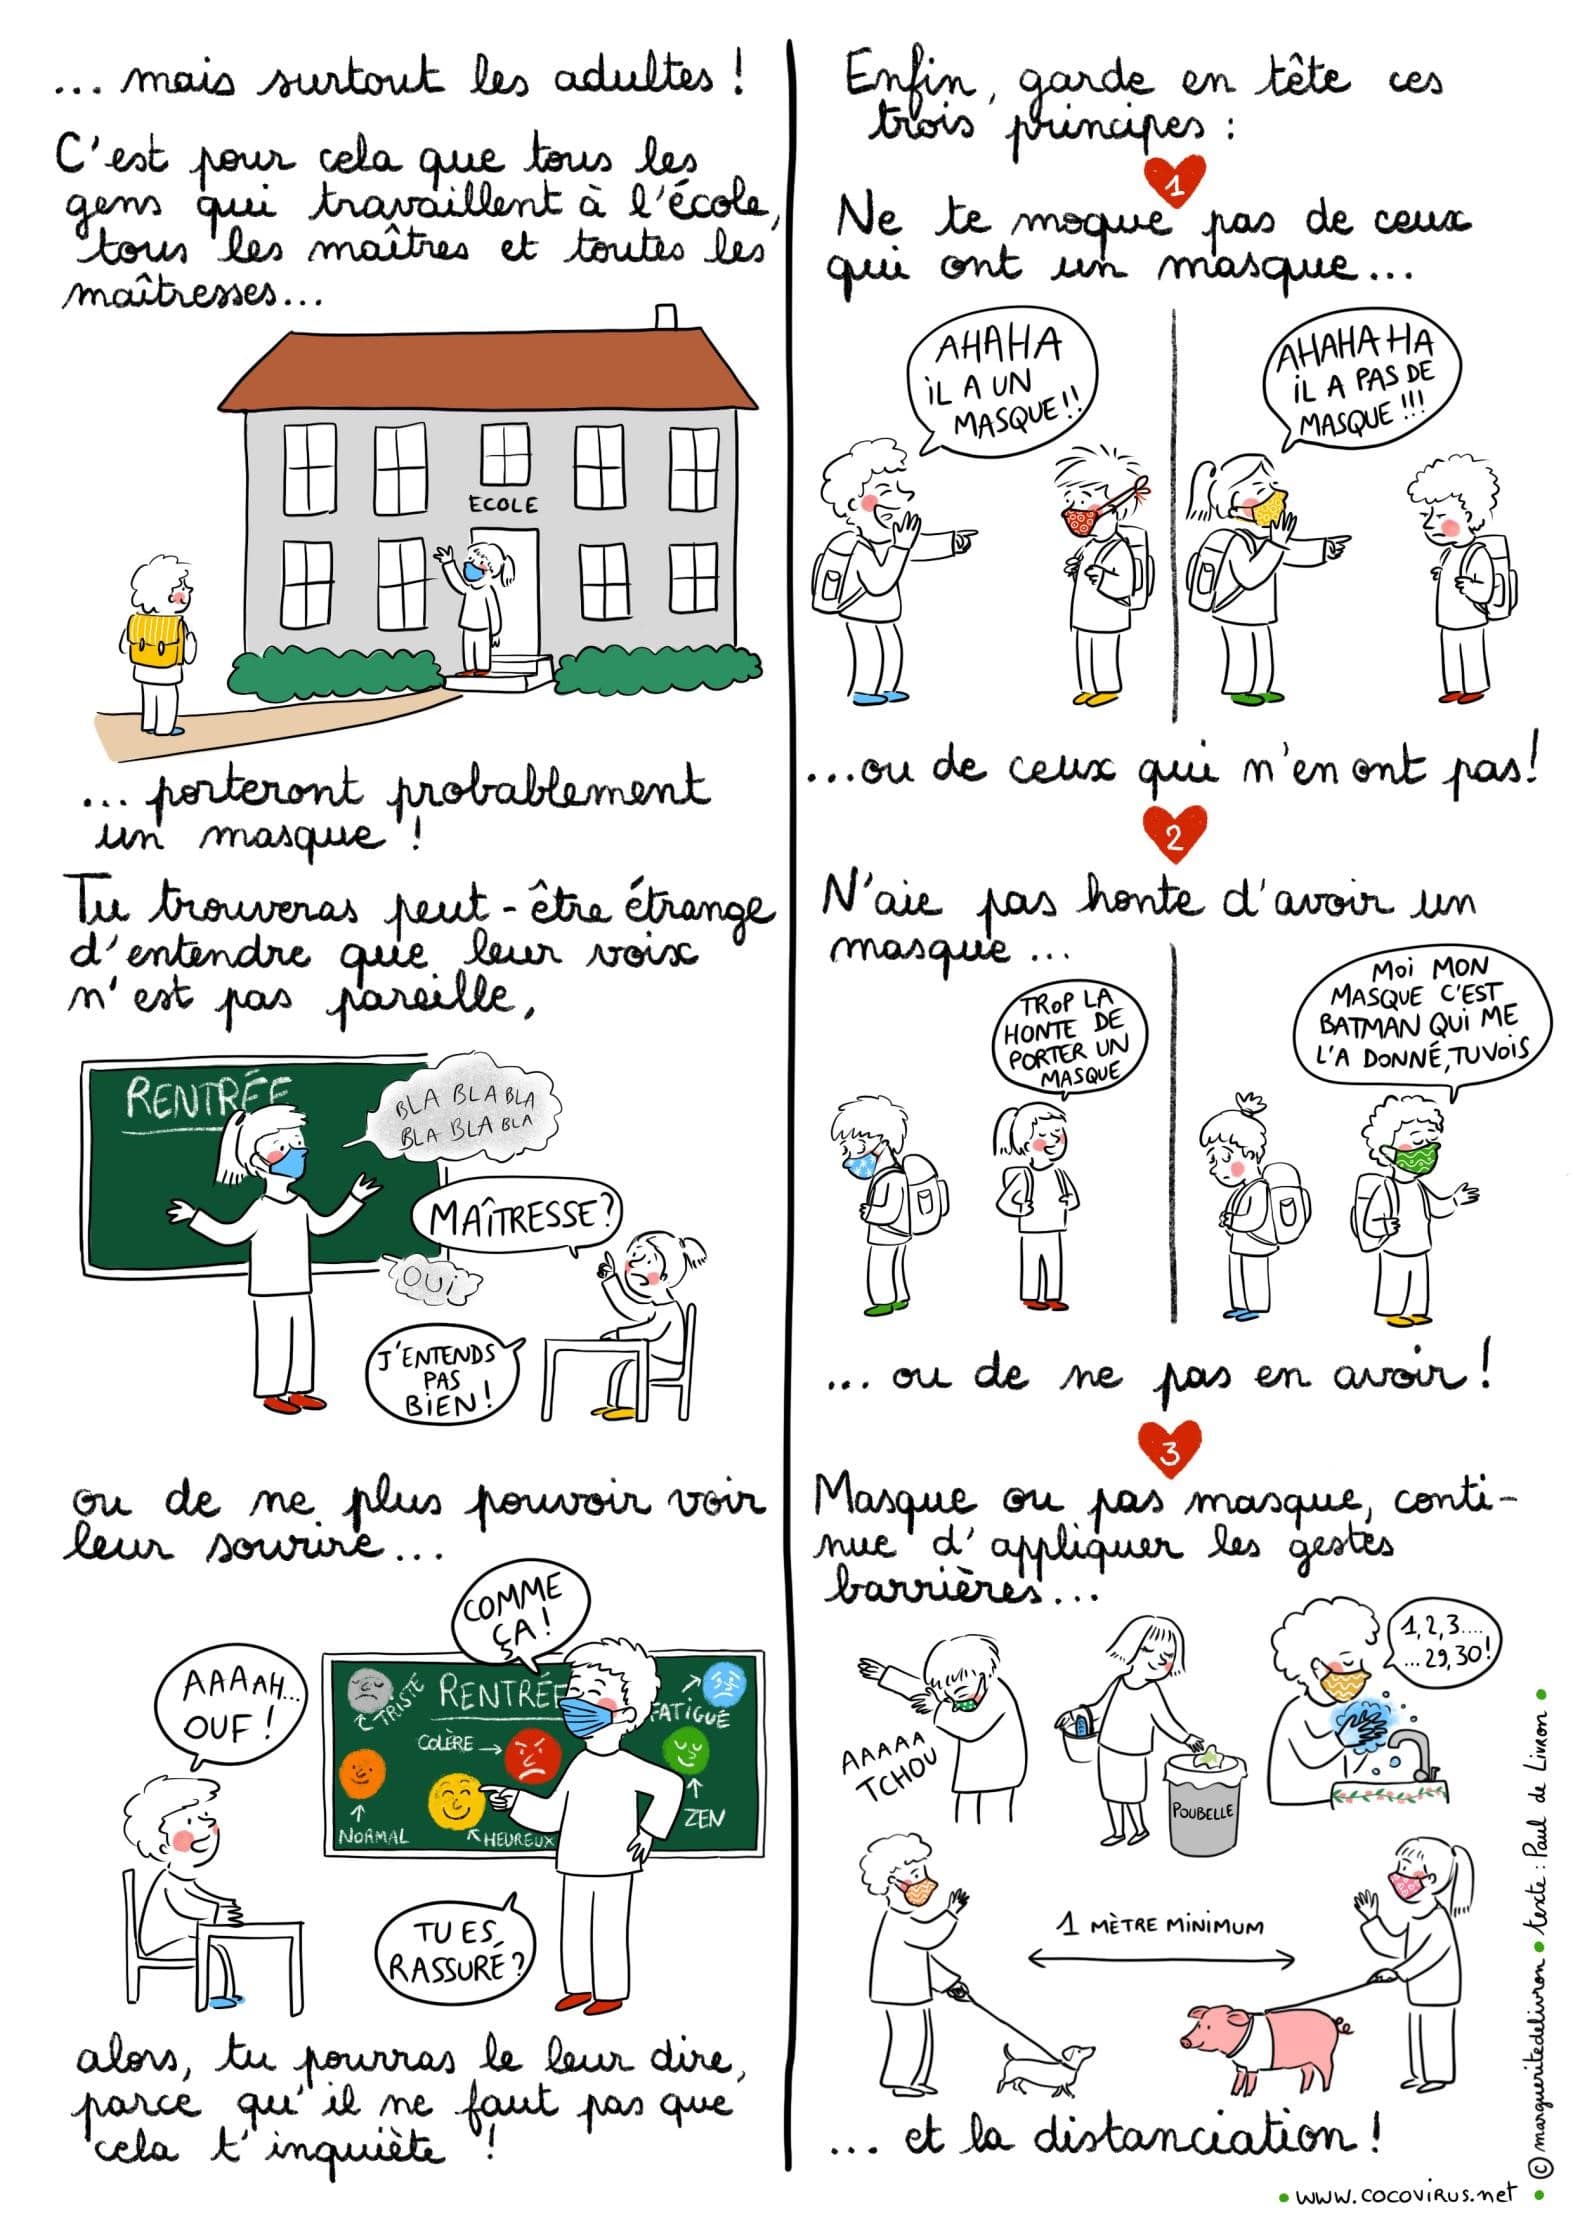 ... mais surtout les adultes !
C'est pour cela que tous les
gens qui travaillent à l'école,
tous les maîtres et toutes les
maîtresses...
ECOLE
... porteront probablement
un masque !
Tu trouveras peut-être étrange
d'entendre que leur voix
n'est pas pareille,
RENTRÉE
BLA BLA BLA
BLA BLA BLA
MAÎTRESSE ?
OUI
J'ENTENDS
PAS
BIEN !
ou de ne plus pouvoir voir
leur sourire...
COMME
ÇA !
AAAAH...
OUF !
TRISTE
RENTRÉE
FATIGUÉ
COLÈRE
NORMAL
HEUREUX
ZEN
TU ES
RASSURÉ ?
alors, tu pourras le leur dire,
parce qu'il ne faut pas que
cela t'inquiète !
Enfin, garde en tête ces
trois principes :
1
Ne te moque pas de ceux
qui ont un masque...
AHAHA
IL A UN
MASQUE !!
AHAHAHA
IL A PAS DE
MASQUE !!!
...ou de ceux qui n'en ont pas !
2
N'aie pas honte d'avoir un
masque ...
TROP LA
HONTE DE
PORTER UN
MASQUE
MOI MON
MASQUE C'EST
BATMAN QUI ME
L'A DONNÉ, TU VOIS
... ou de ne pas en avoir !
3
Masque ou pas masque, conti-
nue d'appliquer les gestes
barrières...
AAAAA
TCHOU
POUBELLE
1,2,3....
...29,30!
1 MÈTRE MINIMUM
... et la distanciation !
© margueritedelivron • texte : Paul de Livron •
• www.cocovirus.net •